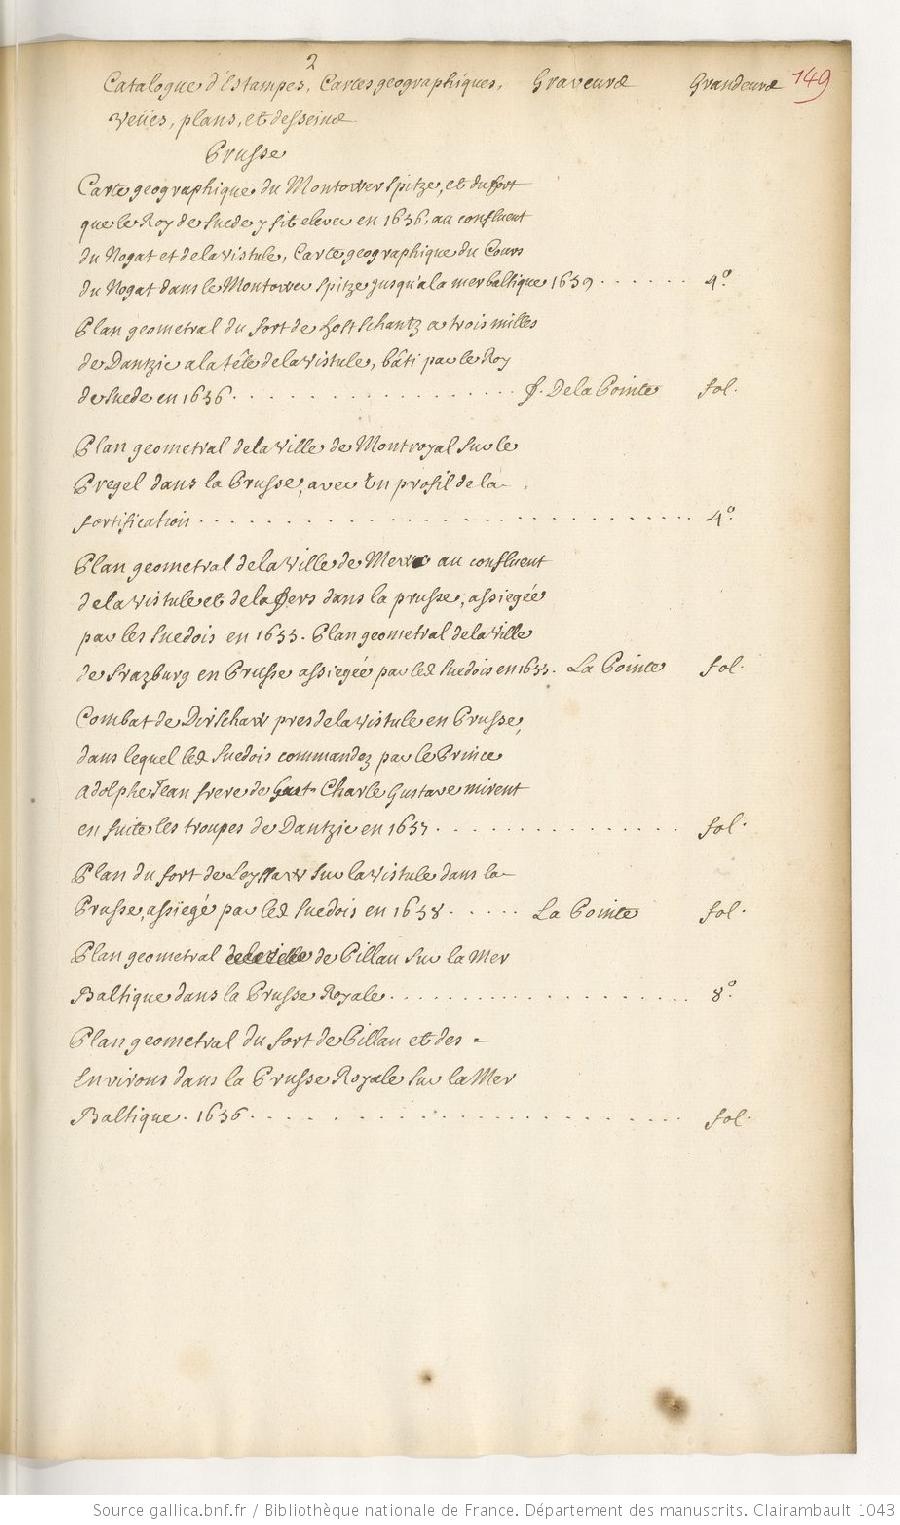 2
Catalogue d'Estampes, Cartes geographiques, Graveurs Grandeurs 149
veües, plans, et desseins
Prusse
Carte geographique du Montower spitze, et du fort
que le Roy de Suede y fit elever en 1656, au confluent
du Nogat et de la Vistule, Carte geographique du Cours
du Nogat dans le Montower Spitze jusqu'à la mer baltique 1659 . . . . . . 4º
Plan geometral du fort de hoft Schantz a trois milles
de Dantzic a la tête de la Vistule, bâti par le Roy
de Suede en 1656 . . . . . . . . . . . . . . . . . . De la Pointe fol.
Plan geometral de la Ville de Montroyal sur le
Pregel dans la Prusse, avec Un profil de la
fortification . . . . . . . . . . . . . . . . . . . . . . . . . . . . 4º
Plan geometral de la Ville de au confluent
de la Vistule et de la fers dans la prusse, assiegée
par les Suedois en 1655. Plan geometral de la Ville
de Srazburg en Prusse assiegée par les Suedois en 1655. La Pointe fol.
Combat de Dirschaw pres de la Vistule en Prusse,
dans lequel les Suedois commandez par le Prince
Adolphe Jean frere de Charle Gustave mirent
en fuite les troupes de Dantzic en 1657 . . . . . . . . . . . . . fol.
Plan du fort de sur la Vistule dans la
Prusse, assiegé par les Suedois en 1658 . . . . . La Pointe fol.
Plan geometral de la Ville de Pillau sur la Mer
Baltique dans la Prusse Royale . . . . . . . . . . . . . . . . . . . 8º
Plan geometral du fort de Pillau et des
Environs dans la Prusse Royale sur la Mer
Baltique. 1656 . . . . . . . . . . . . . . . . . . . . . . . . fol.
Source gallica.bnf.fr / Bibliothèque nationale de France. Département des manuscrits. Clairambault 1043